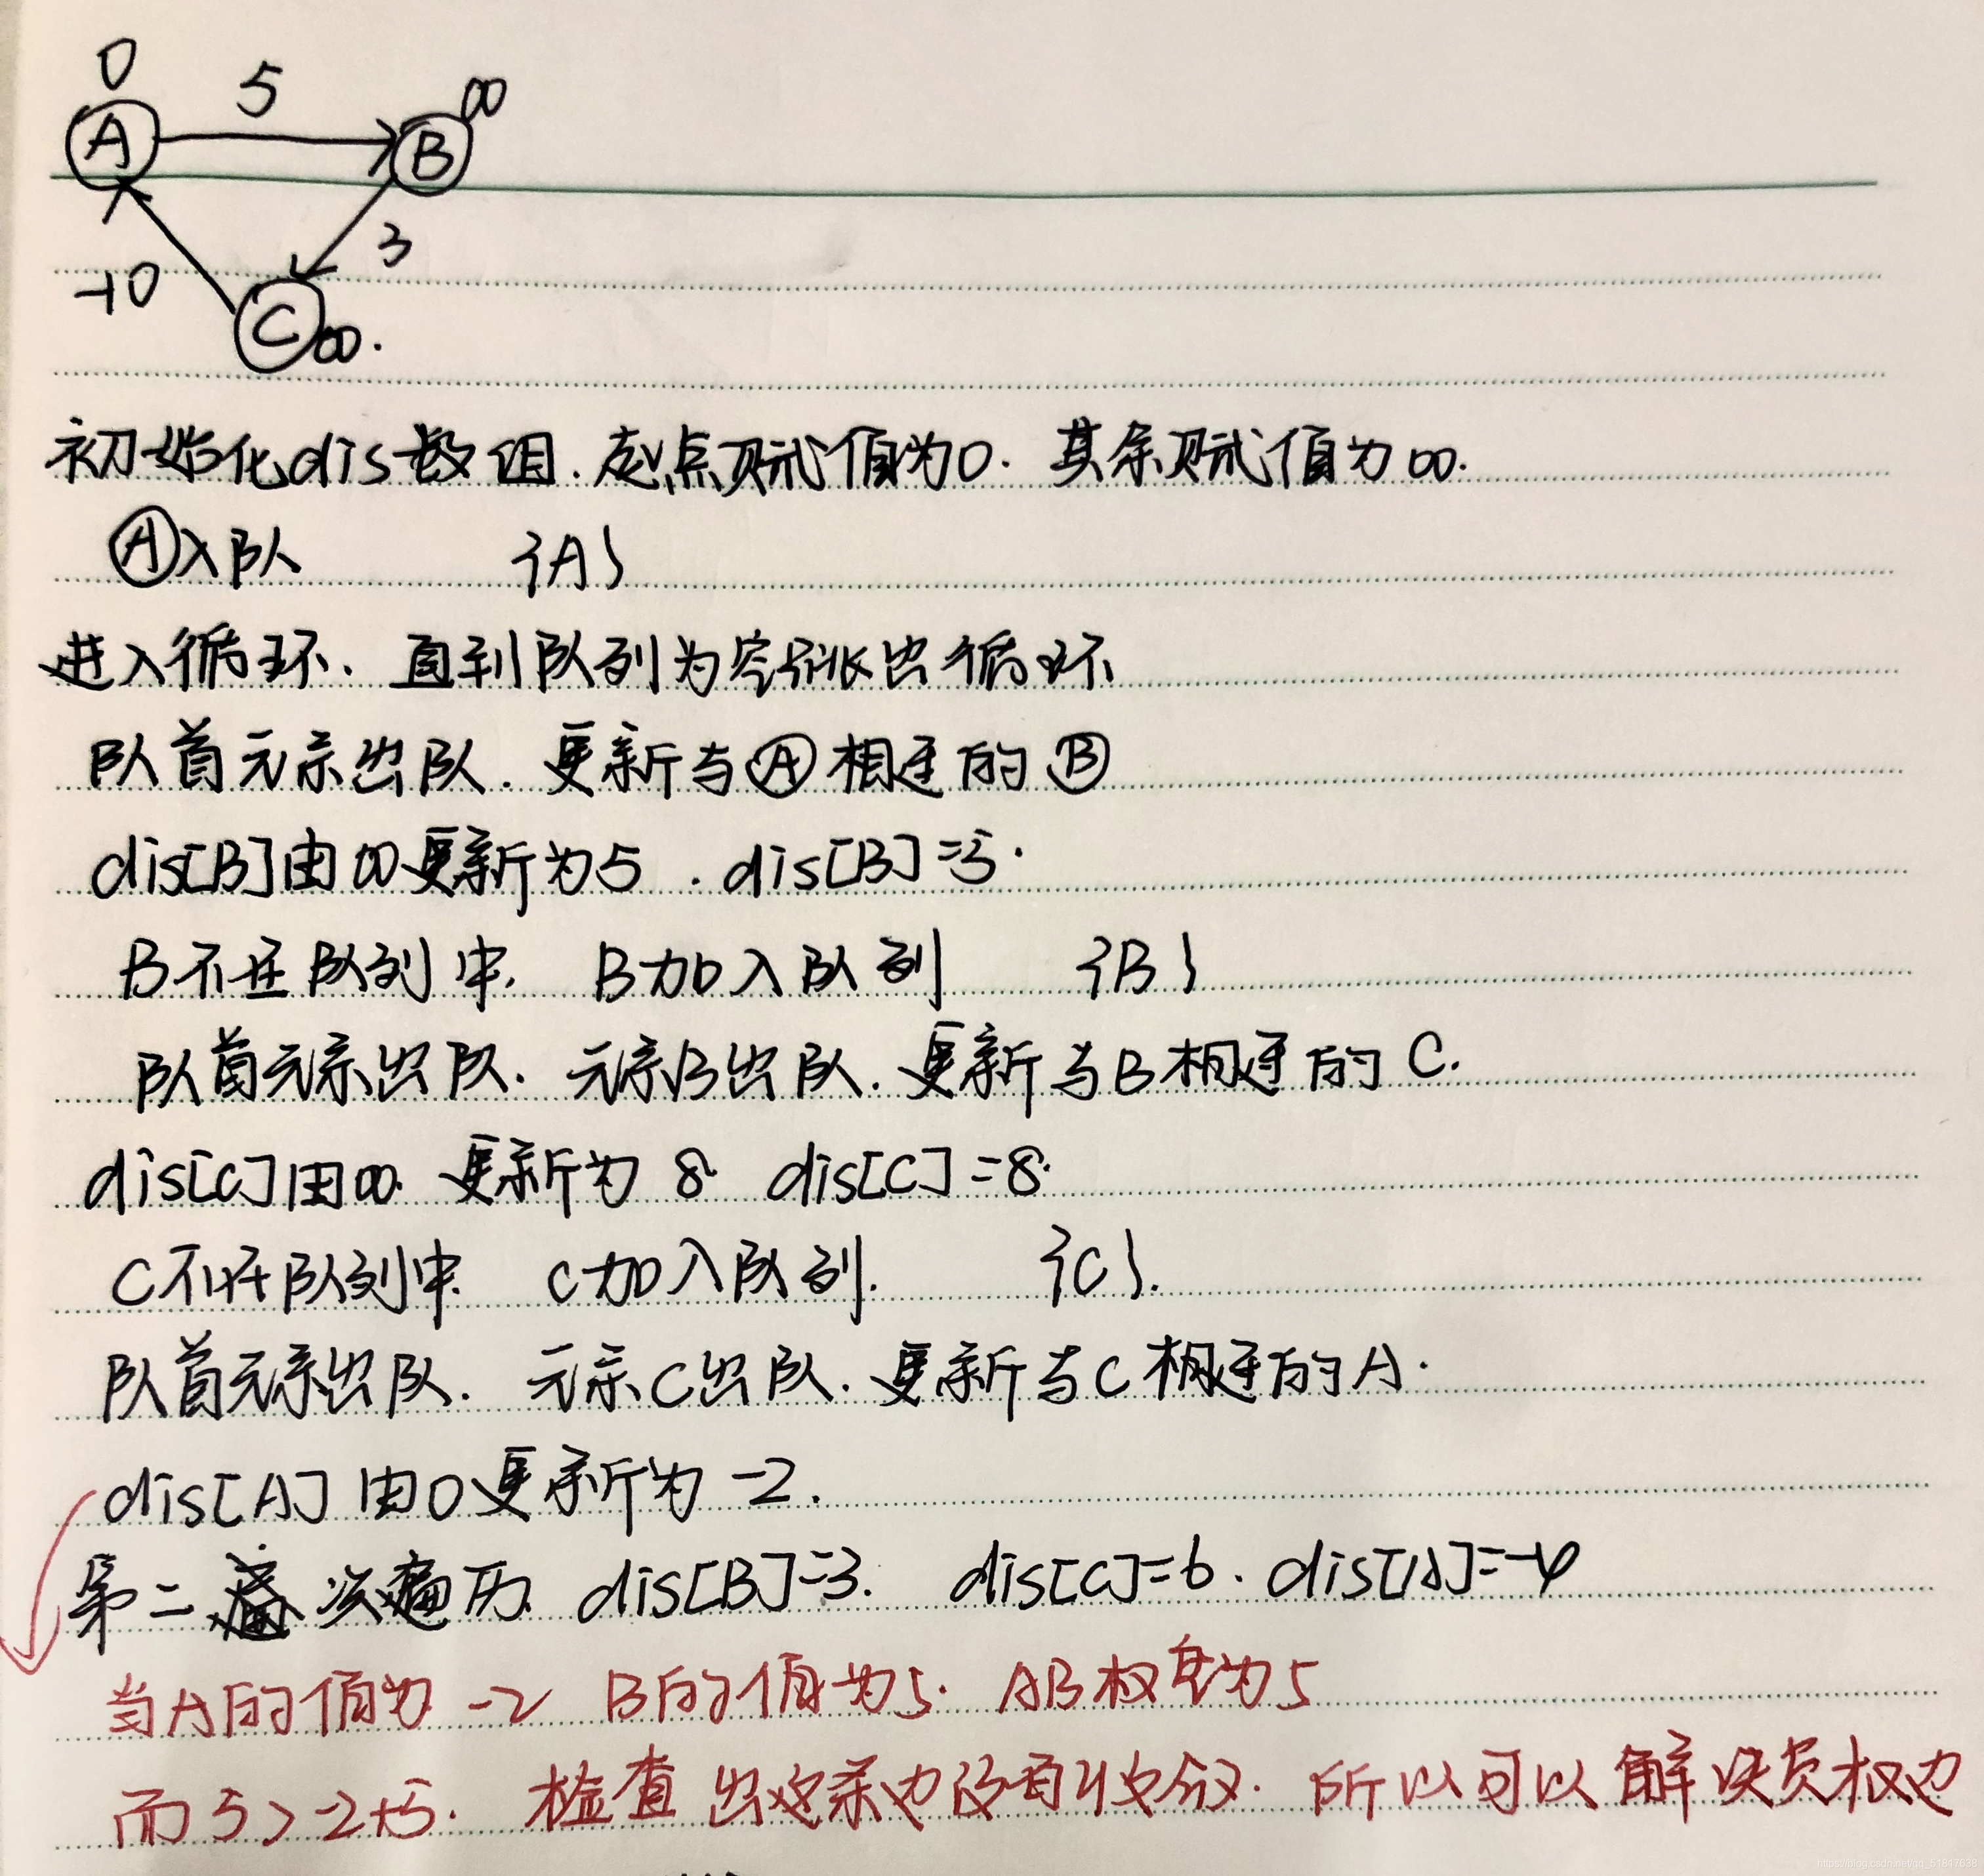 0
5
∞
A
B
3
-10
C
∞.
初始化dis数组.起点赋值为0.其余赋值为∞.
A入队 {A}
进入循环.直到队列为空跳出循环
队首元素出队.更新与A相连的B
dis[B]由∞更新为5.dis[B]=5.
B不在队列中,B加入队列 {B}
队首元素出队.元素B出队.更新与B相连的C.
dis[C]由∞.更新为8 dis[C]=8.
C不在队列中.C加入队列.{C}.
队首元素出队.元素C出队.更新与C相连的A.
dis[A]由0更新为-2.
第二次遍历.dis[B]=3.dis[C]=6.dis[A]=-4
当A的值为-2 B的值为5.AB权重为5
而5>-2+5.检查出这条边没有收敛.所以可以解决负权边